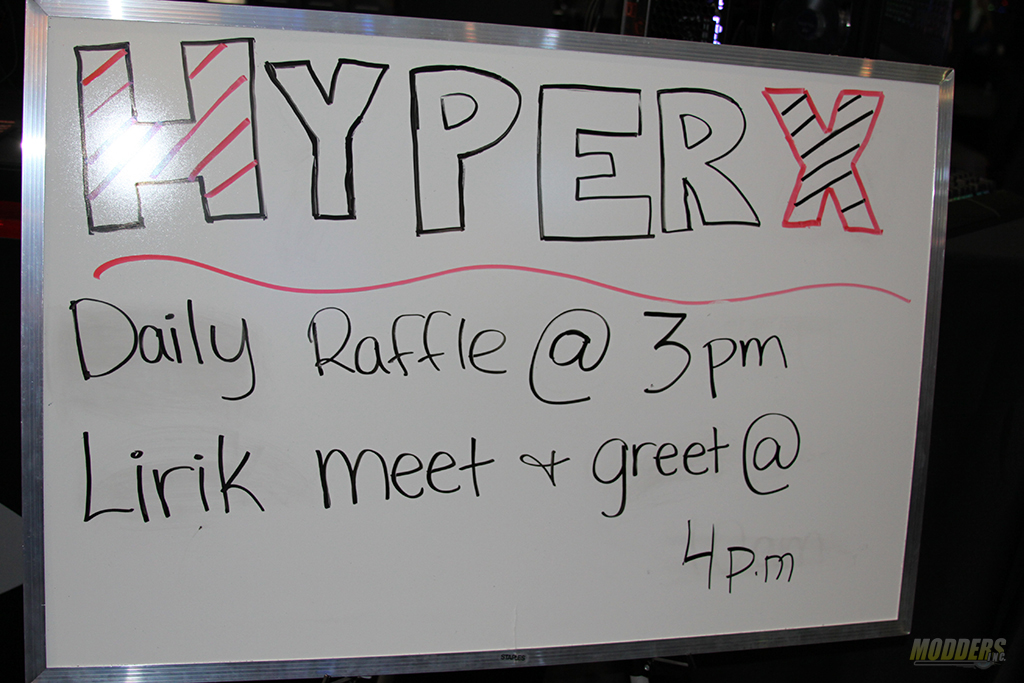 HYPERX
Daily Raffle @ 3pm
Lirik meet & greet @
4 p.m
STAPLES
MODDERS
INC.